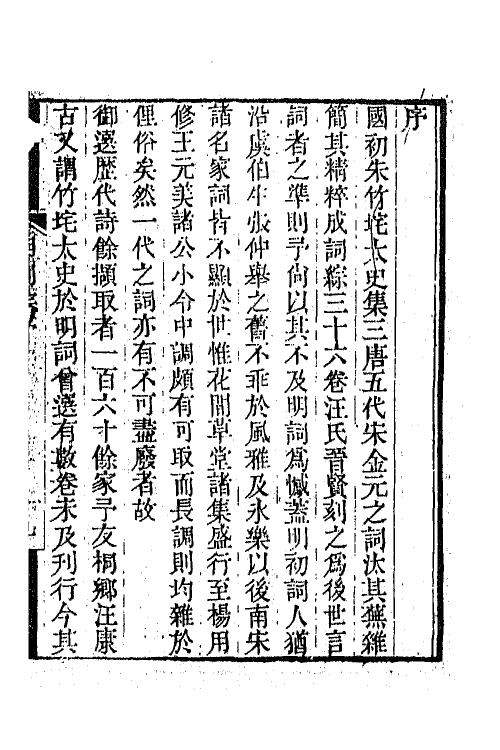 序
國初朱竹垞太史集三唐五代宋金元之詞汰其蕪雜
簡其精粹成詞綜三十六卷汪氏晉賢刻之爲後世言
詞者之準則予向以其不及明詞爲憾蓋明初詞人猶
沿虞伯生張仲舉之舊不乖於風雅及永樂以後南宋
諸名家詞皆不顯於世惟花間草堂諸集盛行至楊用
修王元美諸公小令中調頗有可取而長調則均雜於
俚俗矣然一代之詞亦有不可盡廢者故
御選歷代詩餘擷取者一百六十餘家予友桐鄉汪康
古又謂竹垞太史於明詞曾選有數卷未及刊行今其